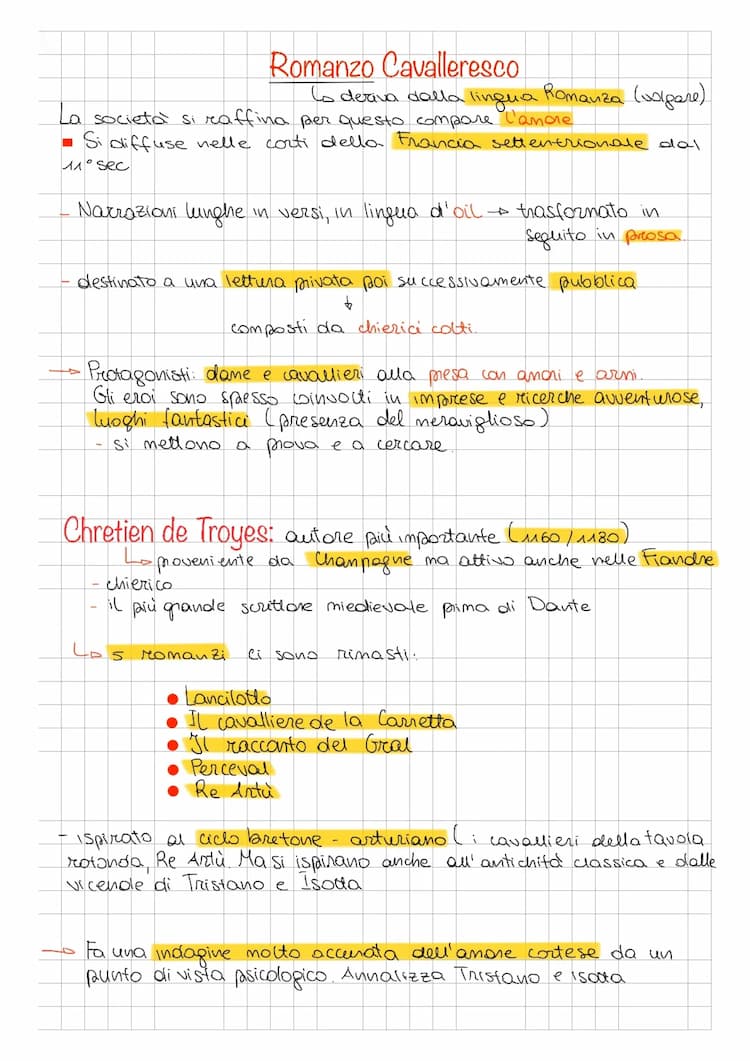 Romanzo Cavalleresco
↳ deriva dalla lingua Romanza (volgare)
La società si raffina per questo compare l'amore
▪ Si diffuse nelle corti della Francia settentrionale dal
11° sec
- Narrazioni lunghe in versi, in lingua d'oil → trasformato in
seguito in prosa
- destinato a una lettura privata poi successivamente pubblica
↓
composti da chierici colti.
→ Protagonisti: dame e cavallieri alla presa con amori e armi.
Gli eroi sono spesso coinvolti in imprese e ricerche avventurose,
luoghi fantastici (presenza del meraviglioso)
- si mettono a prova e a cercare
Chretien de Troyes: autore più importante (1160/1180)
↳ proveniente da Champagne ma attivo anche nelle Fiandre
- chierico
- il più grande scrittore medievale prima di Dante
↳ 5 romanzi ci sono rimasti:
• Lancilotto
• Il cavalliere de la Carretta
• Il racconto del Gral
• Perceval
• Re Artù
- ispirato al ciclo bretone - arturiano (i cavallieri della tavola
rotonda, Re Artù. Ma si ispirano anche all'antichità classica e dalle
vicende di Tristano e Isotta
→ Fa una indagine molto accurata dell'amore cortese da un
punto di vista psicologico. Annalizza Tristano e Isotta